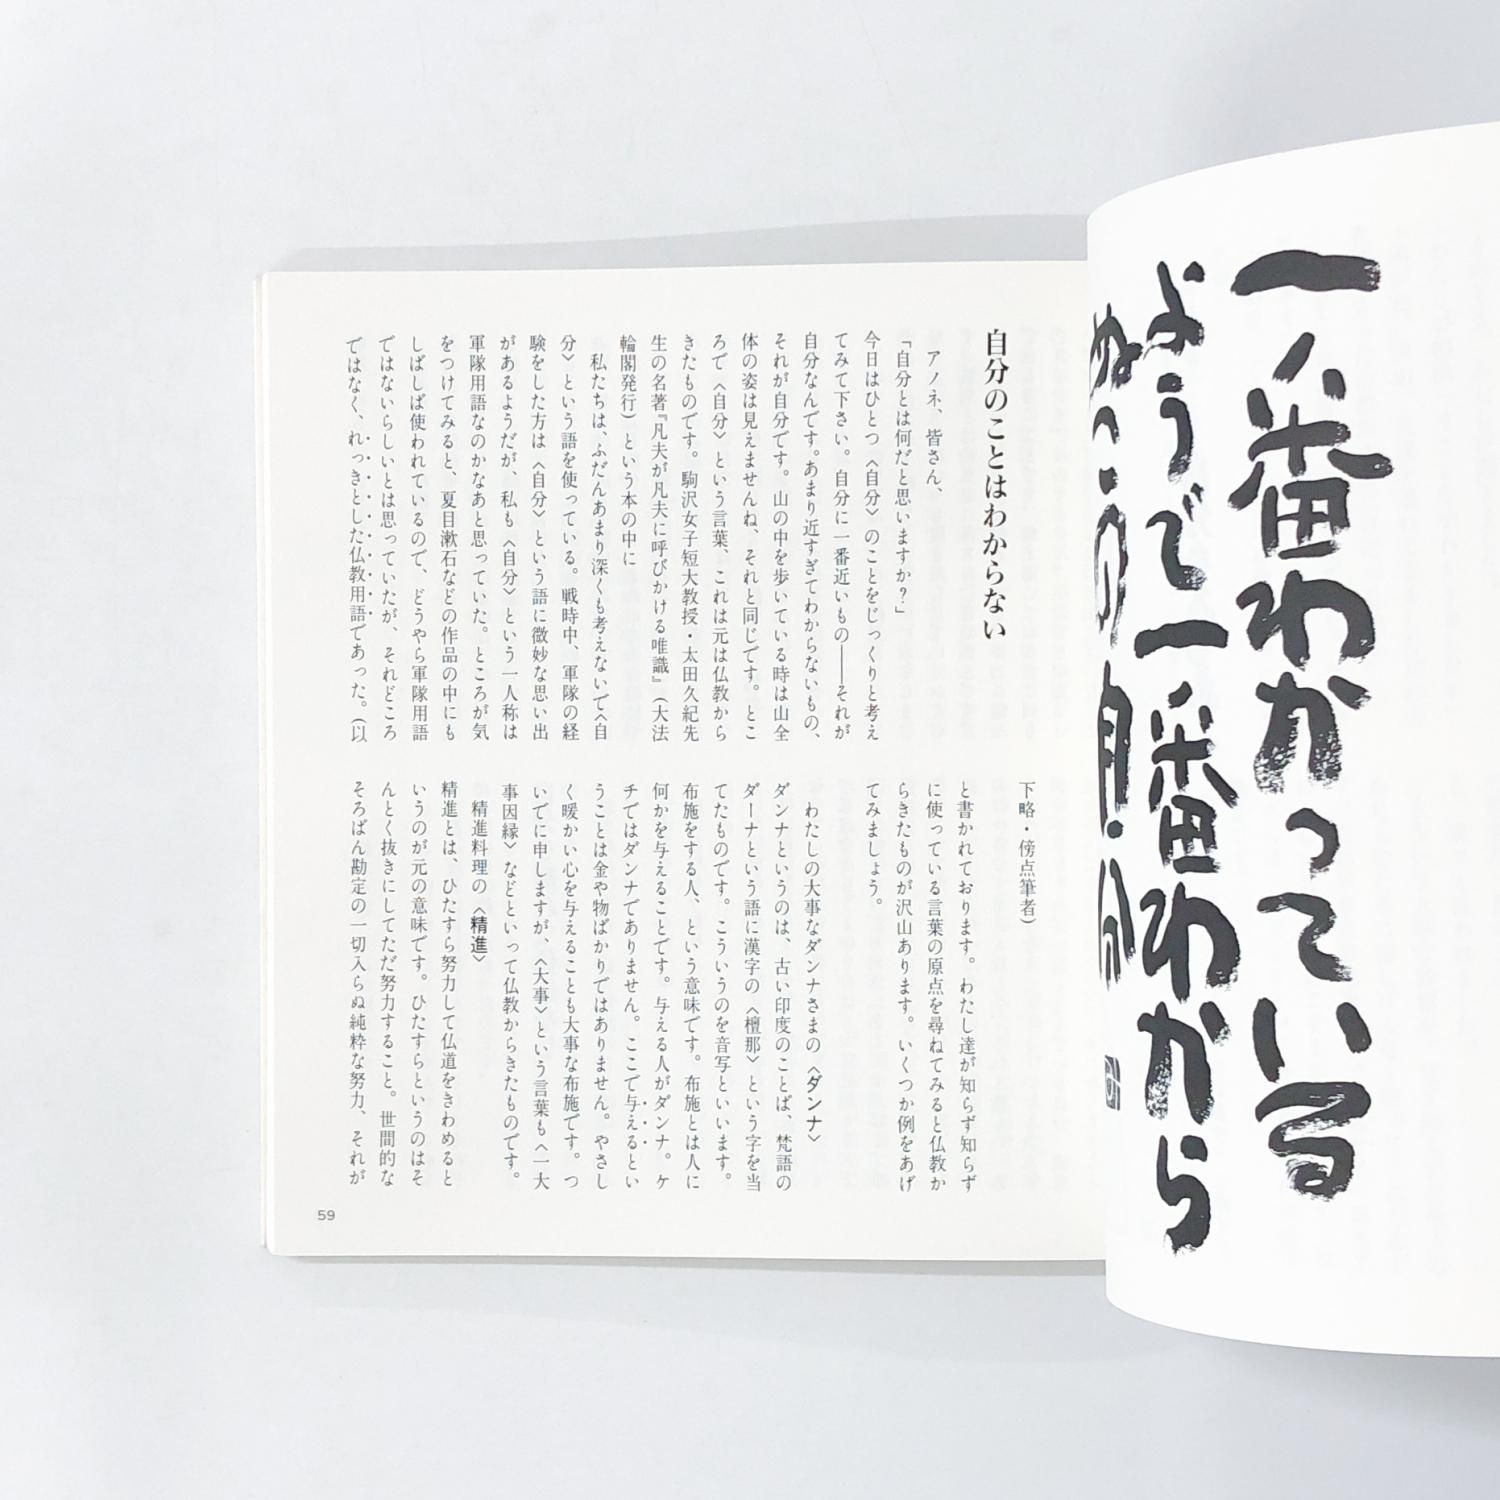 一番わかっている
ようで一番わから
ぬこの自分
自分のことはわからない
アノネ、皆さん、
「自分とは何だと思いますか？」
今日はひとつ〈自分〉のことをじっくりと考え
てみて下さい。自分に一番近いもの――それが
自分なんです。あまり近すぎてわからないもの、
それが自分です。山の中を歩いている時は山全
体の姿は見えませんね、それと同じです。とこ
ろで〈自分〉という言葉、これは元は仏教から
きたものです。駒沢女子短大教授・太田久紀先
生の名著『凡夫が凡夫に呼びかける唯識』（大法
輪閣発行）という本の中に
私たちは、ふだんあまり深くも考えないで〈自
分〉という語を使っている。戦時中、軍隊の経
験をした方は〈自分〉という語に微妙な思い出
があるようだが、私も〈自分〉という一人称は
軍隊用語なのかなあと思っていた。ところが気
をつけてみると、夏目漱石などの作品の中にも
しばしば使われているので、どうやら軍隊用語
ではないらしいとは思っていたが、それどころ
ではなく、れっきとした仏教用語であった。（以
下略・傍点筆者）
と書かれております。わたし達が知らず知らず
に使っている言葉の原点を尋ねてみると仏教か
らきたものが沢山あります。いくつか例をあげ
てみましょう。
わたしの大事なダンナさまの〈ダンナ〉
ダンナというのは、古い印度のことば、梵語の
ダーナという語に漢字の〈檀那〉という字を当
てたものです。こういうのを音写といいます。
布施をする人、という意味です。布施とは人に
何かを与えることです。与える人がダンナ。ケ
チではダンナでありません。ここで与えるとい
うことは金や物ばかりではありません。やさし
く暖かい心を与えることも大事な布施です。つ
いでに申しますが、〈大事〉という言葉も〈一大
事因縁〉などといって仏教からきたものです。
精進料理の〈精進〉
精進とは、ひたすら努力して仏道をきわめると
いうのが元の意味です。ひたすらというのはそ
んとく抜きにしてただ努力すること。世間的な
そろばん勘定の一切入らぬ純粋な努力、それが
59